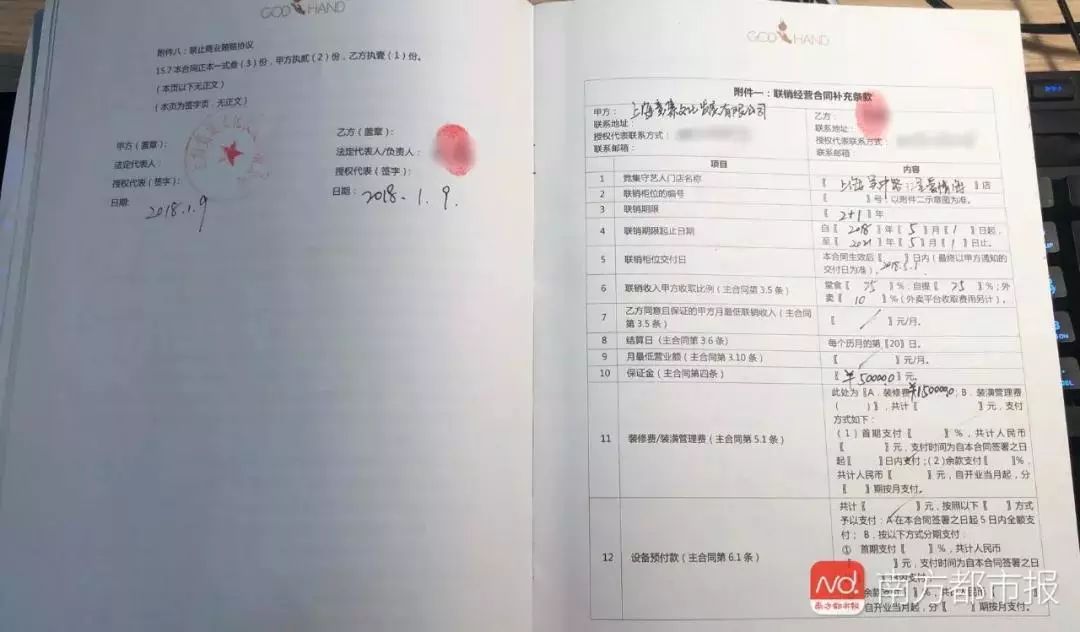 GOD HAND
附件八：禁止商业贿赂协议
15.7 本合同正本一式叁（3）份，甲方执贰（2）份，乙方执壹（1）份。
（本页以下无正文）
（本页为签字页，无正文）
甲方（盖章）：
法定代表人：
授权代表（签字）：
日期：
2018.1.9
乙方（盖章）：
法定代表人/负责人：
授权代表（签字）：
日期：2018.1.9.
GOD HAND
附件一：联销经营合同补充条款
甲方：
联系地址：
授权代表联系方式：
联系邮箱：
乙方：
联系地址：
授权代表联系方式：
联系邮箱：
项目 内容
1 竞集守艺人门店名称 【 】店
2 联销柜位的编号 【 】号！以附件二示意图为准。
3 联销期限 【 2+1 】年
4 联销期限起止日期 自【 2018 】年【 5 】月【 1 】日起，
至【 2021 】年【 5 】月【 1 】日止。
5 联销柜位交付日 本合同生效后【 】日内（最终以甲方通知的
交付日为准）。2018.5.1
6 联销收入甲方收取比例（主合同第 3.5 条） 堂食【 75 】%，自提【 75 】%；外
卖【 10 】%（外卖平台收取费用另计）。
7 乙方同意且保证的甲方月最低联销收入（主合同
第 3.5 条） 【 】元/月。
8 结算日（主合同第 3.6 条） 每个历月的第【20】日。
9 月最低营业额（主合同第 3.10 条） 【 】元/月。
10 保证金（主合同第四条） 【 ￥50000.0 】元。
11 装修费/装潢管理费（主合同第 5.1 条） 此处为【A．装修费￥150000.0；B．装潢管理费
（ ）】，共计【 】元，支付
方式如下：
（1）首期支付【 】%，共计人民币
【 】元，支付时间为自本合同签署之日
起【 】日内支付；（2）余款支付【 】%，
共计人民币【 】元，自开业当月起，分
【 】期按月支付。
12 设备预付款（主合同第 6.1 条） 共计【 】元，按照以下【 】方式
予以支付：A 在本合同签署之日起 5 日内全额支
付； B．按以下方式分期支付：
① 首期支付【 】%，共计人民币
【 】元，支付时间为自本合同签署之日
【 】%，共计人民币【
】元，自开业当月起，分【 】期按月支付。
Nd.
南方都市报
南方都市报